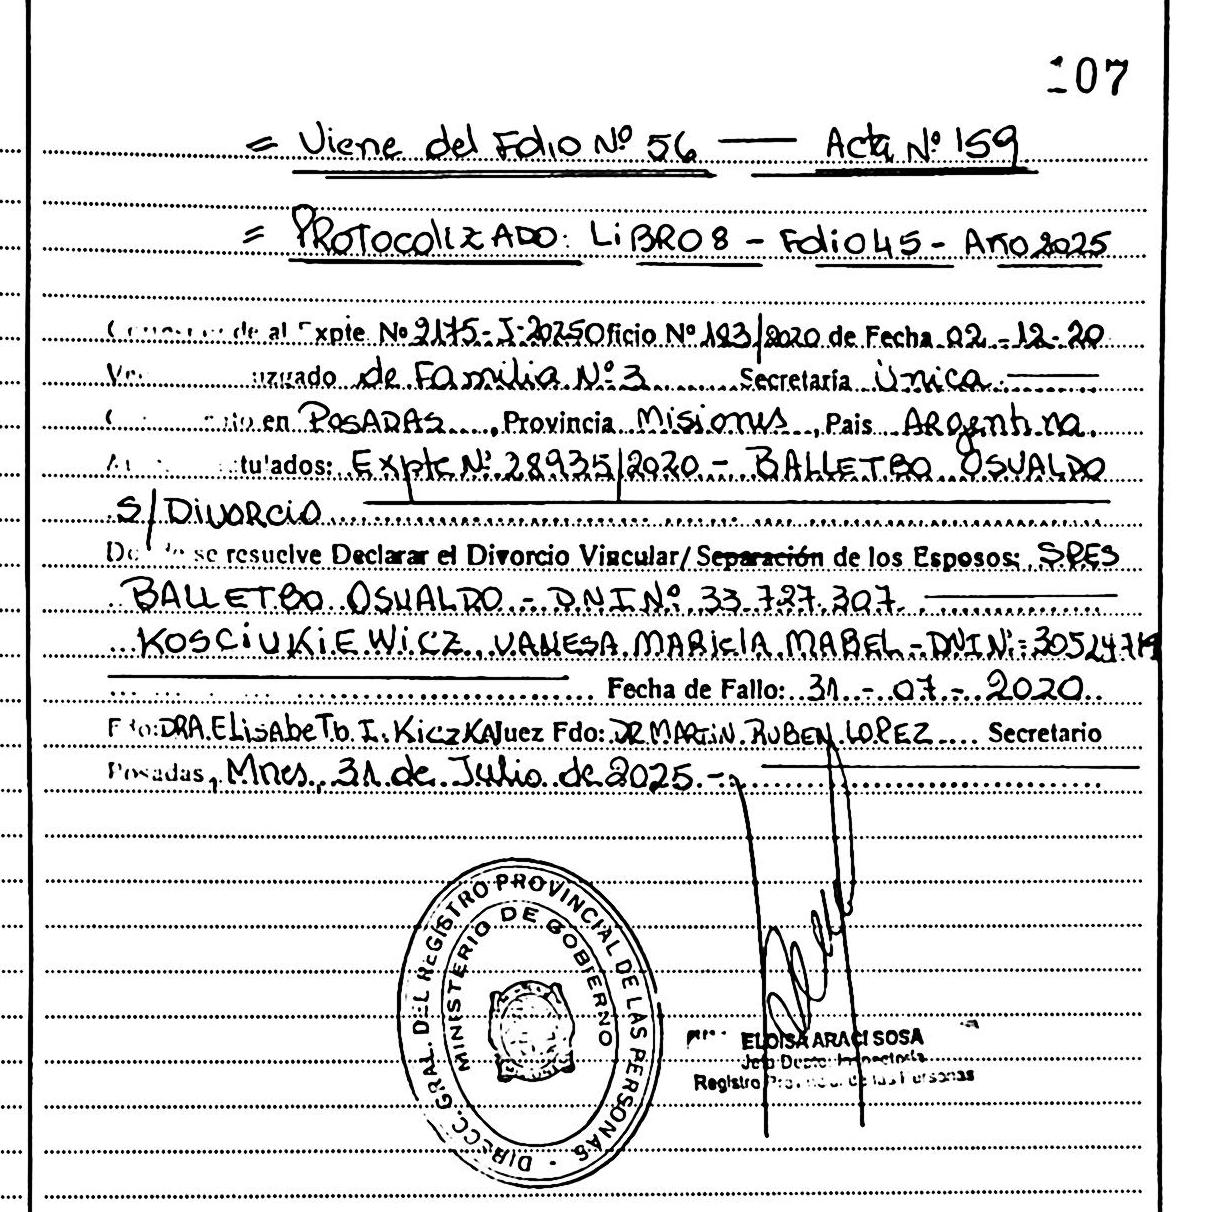 107
= Viene del Folio Nº 56 — Acta Nº 159
= PROTOCOLIZADO: LiBRO 8 - Folio 45 - Año 2025
de al Expte Nº 2175-J-2025 Oficio Nº 193/2020 de Fecha 02-12-20
uzgado de Familia Nº 3 Secretaría Única
en POSADAS, Provincia Misiones, Pais Argentina.
Expte Nº 28935/2020 - BALLETBO OSVALDO
S/DIVORCIO
se resuelve Declarar el Divorcio Vincular/Separación de los Esposos: SRES
BALLETBO OSVALDO - DNI Nº 33.727.307
KOSCIUKIEWICZ, VANESA MARICIA MABEL - DNI Nº:
Fecha de Fallo: 31-07-2020
Fdo: DRA. ELisAbeTh I. KiczKA Juez Fdo: DR MARTiN RUBEN LOPEZ Secretario
Posadas, Mnes, 31 de Julio de 2025.-
DIRECC. GRAL. DEL REGISTRO PROVINCIAL DE LAS PERSONAS
MINISTERIO DE GOBIERNO
ELOISA ARACI SOSA
Jefa Dpto. Inspectoría
Registro Provincial de las Personas